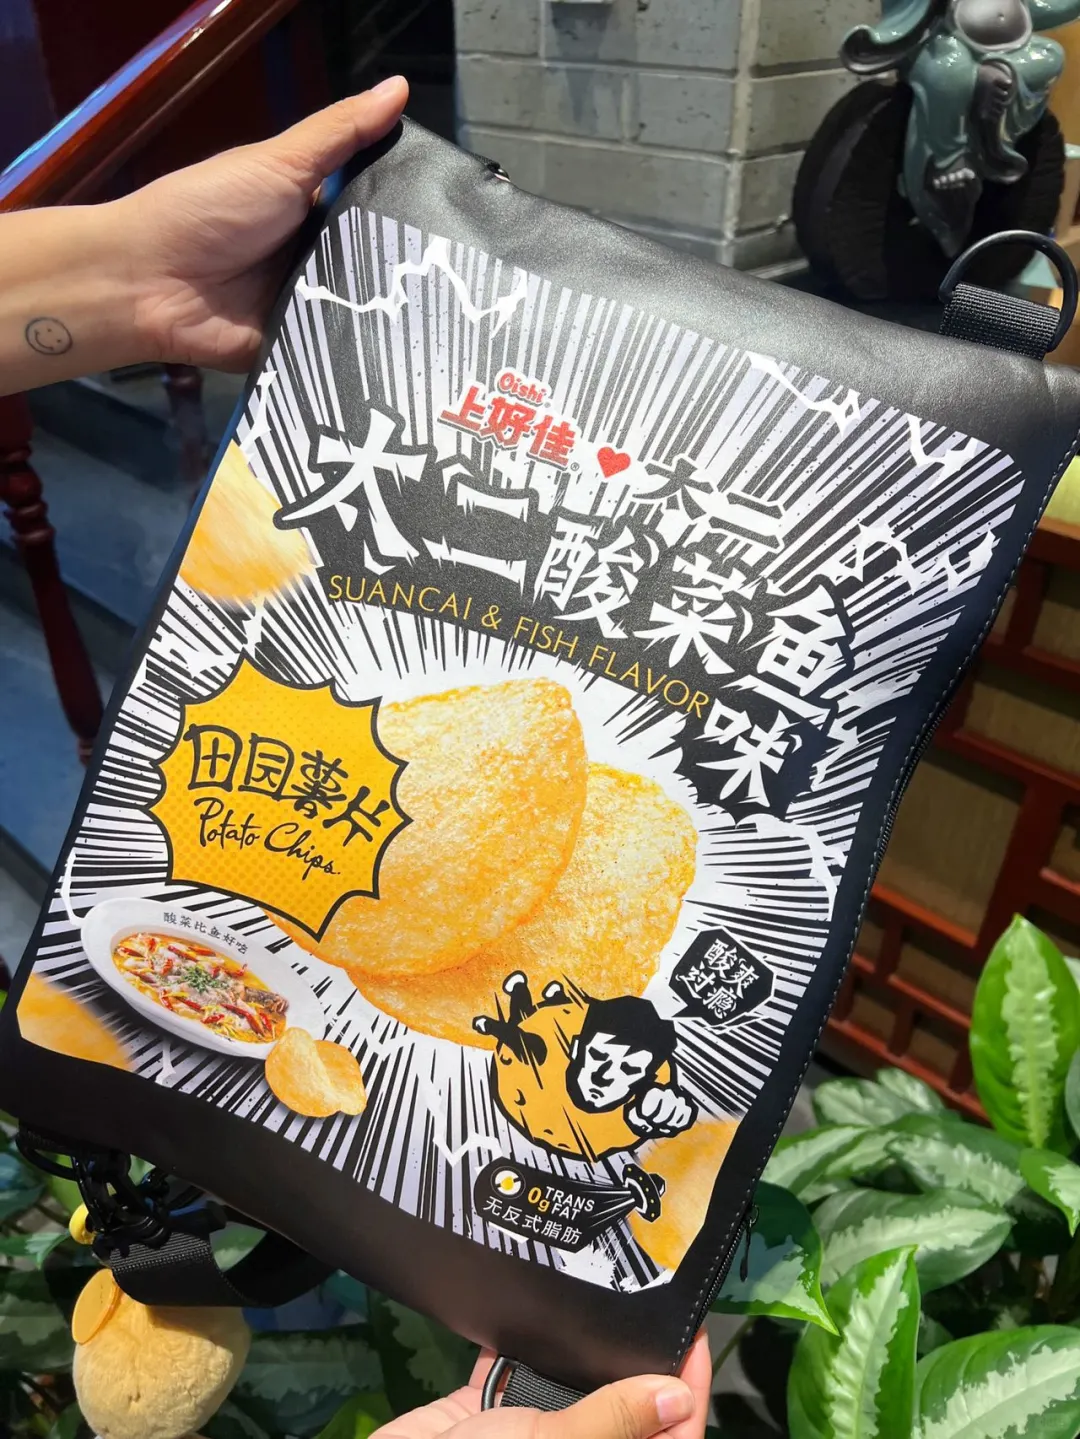 Oishi
上好佳® ❤ 太二
太二酸菜鱼味
SUANCAI & FISH FLAVOR
田园薯片
Potato Chips
酸菜比鱼好吃
酸爽
过瘾
0g TRANS FAT
无反式脂肪